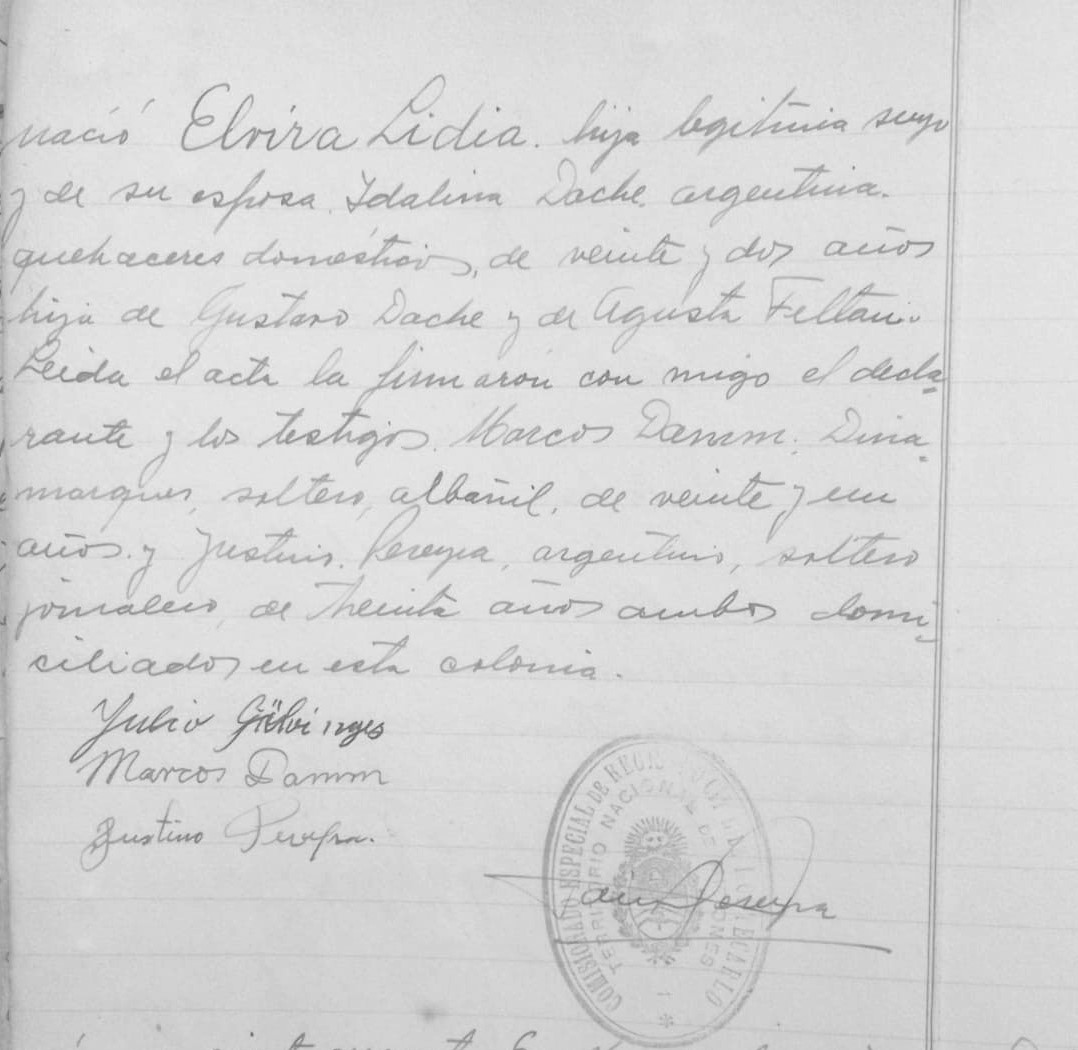 nació Elvira Lidia. hija legitima suya
y de su esposa. Idalina Dache. argentina.
quehaceres domésticos, de veinte y dos años
hija de Gustavo Dache y de Agusta Feltan.
Leida el acta la firmaron con migo el decla=
rante y los testigos. Marcos Damm. Dina=
marques, soltero, albañil, de veinte y un
años. y Justino. Pereyra, argentino, soltero
jornalero, de treinta años ambos domi=
ciliados en esta colonia.
Julio
Marcos Damm
Justino Pereyra.
COMISIONADO ESPECIAL DE REGISTRO
TERRITORIO NACIONAL DE MISIONES
Pereyra